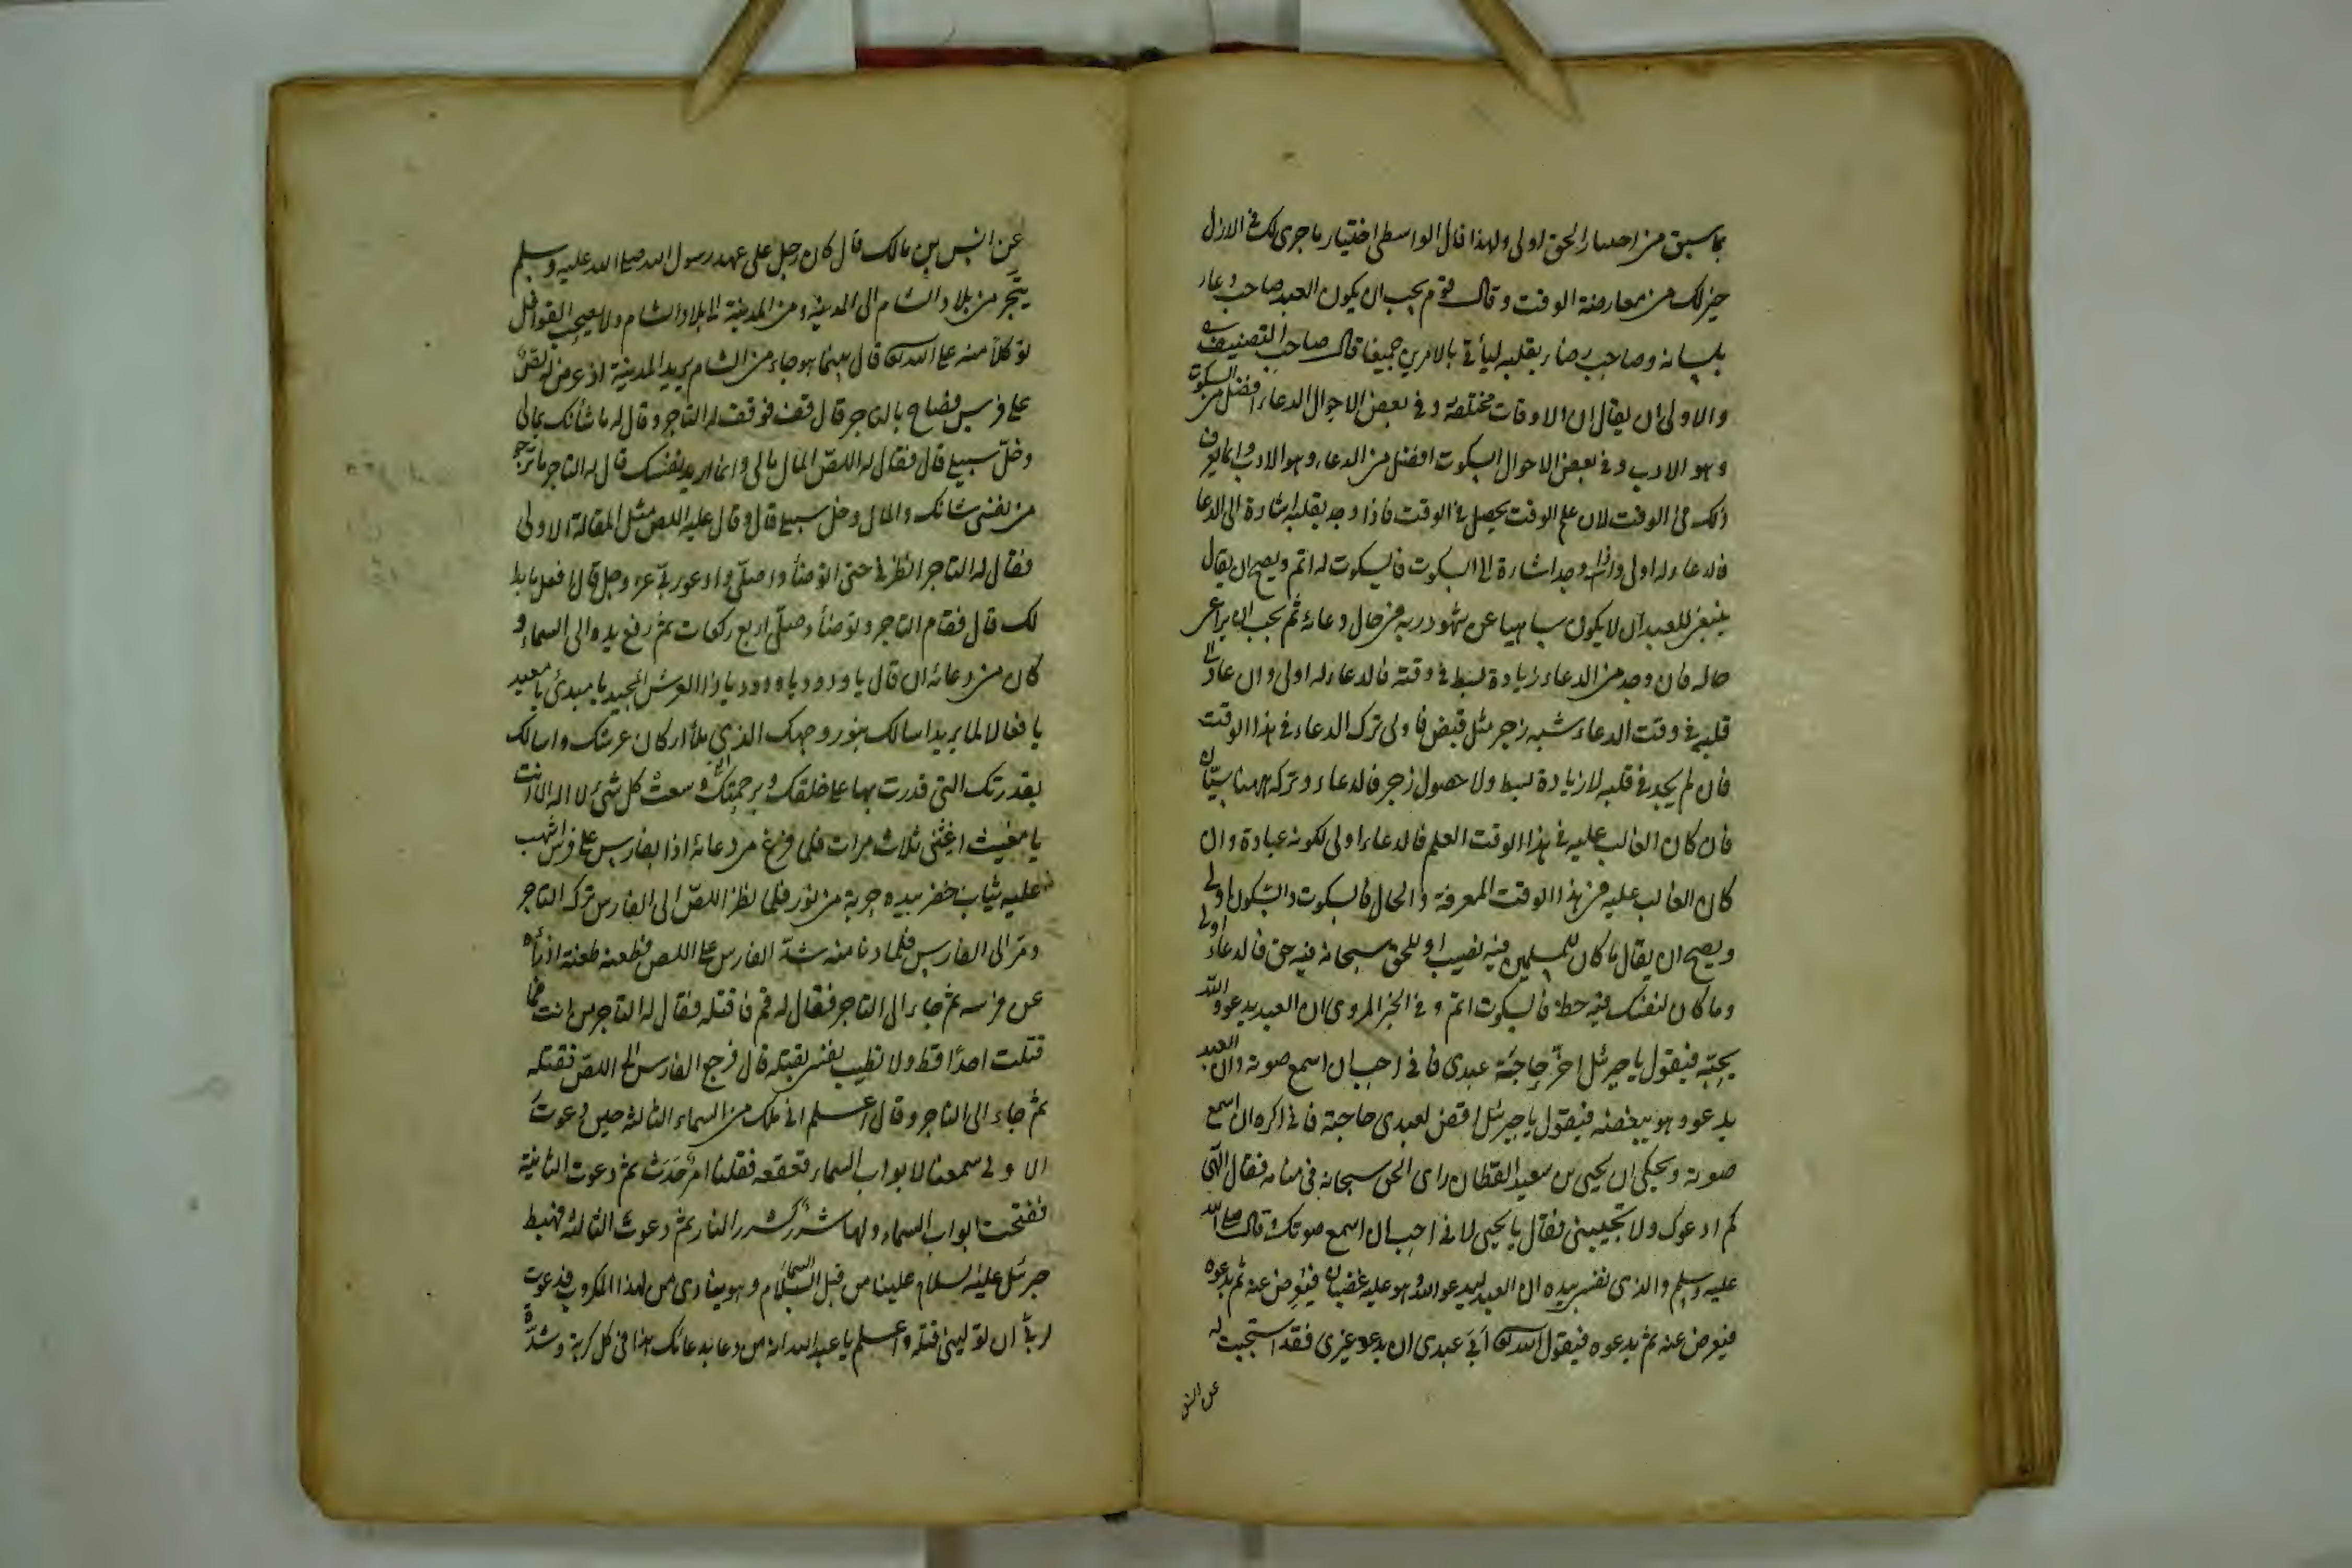 بما سبق من اختيار الحق اولى ولهذا قال الواسطى اختيار ما جرى لك فى الازل
خير لك من معارضة الوقت وقال قوم يجب ان يكون العبد صاحب دعاء
بلسانه وصاحب رضاء بقلبه ليأتى بالامرين جميعا قال صاحب التصنيف
والاولى ان يقال ان الاوقات مختلفة وفى بعض الاحوال الدعاء افضل من السكوت
وهو الادب وفى بعض الاحوال السكوت افضل من الدعاء وهو الادب وانما يعرف
ذلك فى الوقت لان علم الوقت يحصل فى الوقت فاذا وجد بقلبه اشارة الى الدعا
فالدعاء له اولى واذا وجد اشارة الى السكوت فالسكوت له اتم ويصح ان يقال
ينبغى للعبد ان لا يكون ساهيا عن شهود ربه فى حال دعائه ثم يجب ان يراعى
حاله فان وجد من الدعاء زيادة بسط فى وقته فالدعاء له اولى وان عاد الى
قلبه فى وقت الدعاء شبه زجر مثل قبض فاولى ترك الدعاء فى هذا الوقت
فان لم يجد فى قلبه لا زيادة بسط ولا حصول زجر فالدعاء وتركه ههنا سيّان
فان كان الغالب عليه فى هذا الوقت العلم فالدعاء اولى لكونه عبادة وان
كان الغالب عليه فى هذا الوقت المعرفة والحال فالسكوت والسكون اولى
ويصح ان يقال ما كان للمسلمين فيه نصيب او للحق سبحانه فيه حق فالدعاء اولى
وما كان لنفسك فيه حظ فالسكوت اتم وفى الخبر المروى ان العبد يدعو الله
يحبّه فيقول يا جبرئل اخّر حاجة عبدى فانى احب ان اسمع صوته وان العبد
يدعو وهو يبغضه فيقول يا جبرئل اقض لعبدى حاجته فانى اكره ان اسمع
صوته ويحكى ان يحيى بن سعيد القطان راى الحق سبحانه فى منامه فقال الهى
كم ادعوك ولا تجيبنى فقال يا يحيى لانى احب ان اسمع صوتك قال صلى الله
عليه وسلم والذى نفسى بيده ان العبد ليدعو الله وهو عليه غضبان فيعرض عنه ثم يدعوه
فيعرض عنه ثم يدعوه فيقول الله تعا أبى عبدى ان يدعو غيرى فقد استجبت له
عن انس
عن انس بن مالك قال كان رجل على عهد رسول الله صلى الله عليه وسلم
يتجر من بلاد الشام الى المدينة ومن المدينة الى بلاد الشام ولا يصحب القوافل
توكلا منه على الله تعا قال بينما هو جاء من الشام يريد المدينة اذ عرض له لصّ
على فرس فصاح بالتاجر قال قف فوقف له التاجر وقال له ما شأنك بمالى
وخلّ سبيلى قال فقال له اللصّ المال مالى وانما اريد نفسك قال له التاجر ما ترجو
من نفسى شانك والمال وخل سبيلى قال وقال عليه اللص مثل المقالة الاولى
فقال له التاجر انظرنى حتى اتوضأ واصلّى وادعو ربى عز وجل قال افعل ما بدا
لك قال فقام التاجر وتوضأ وصلّى اربع ركعات ثم رفع يده الى السماء و
كان من دعائه ان قال يا ودود يا ودود يا ذا العرش المجيد يا مبدئ يا معيد
يا فعالا لما يريد اسالك بنور وجهك الذى ملأ اركان عرشك واسالك
بقدرتك التى قدرت بها على خلقك وبرحمتك التى وسعت كل شئ لا اله الا انت
يا مغيث اغثنى ثلاث مرات فلما فرغ من دعائه اذا بفارس على فرس اشهب
عليه ثياب خضر بيده حربة من نور فلما نظر اللصّ الى الفارس ترك التاجر
ومرّ الى الفارس فلما دنا منه شدّ الفارس على اللص فطعنه طعنة اذراه
عن فرسه ثم جاء الى التاجر فقال له قم فاقتله فقال له التاجر من انت فما
قتلت احدًا قط ولا تطيب نفسى بقتله قال فرجع الفارس الى اللصّ فقتله
ثم جاء الى التاجر وقال اعلم انى ملك من السماء الثالثة حين دعوت
الاولى سمعنا لابواب السماء قعقعه فقلنا امر حَدَث ثم دعوت الثانية
ففتحت ابواب السماء ولها شرر كشرر النار ثم دعوت الثالثة فهبط
جبرئل عليه السلام علينا من قبل السماء وهو ينادى من لهذا المكروب فدعوت
ربى ان يولينى قتله واعلم يا عبد الله انه من دعا بدعائك هذا فى كل كربة وشدّة